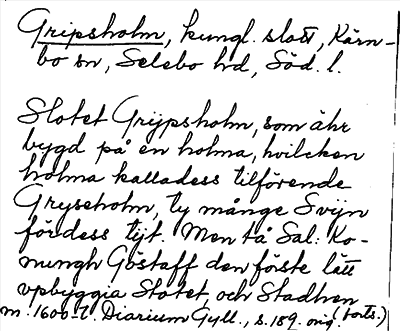 Gripsholm, kungl. slott, Kärn-
bo sn, Selebo hd, Söd. l.
Slotet Grijpsholm, som ähr
bygd på en holma, hvilcken
holma kalladess tilförende
Gryseholm, ty månge Svijn
föddess tijt. Men tå Sal: Ko-
nungh Göstaff den förste lätt
vpbyggia Slotet, och Stadhen
m. 1600-t. Diarium Gyll., s. 189. orig. (forts.)